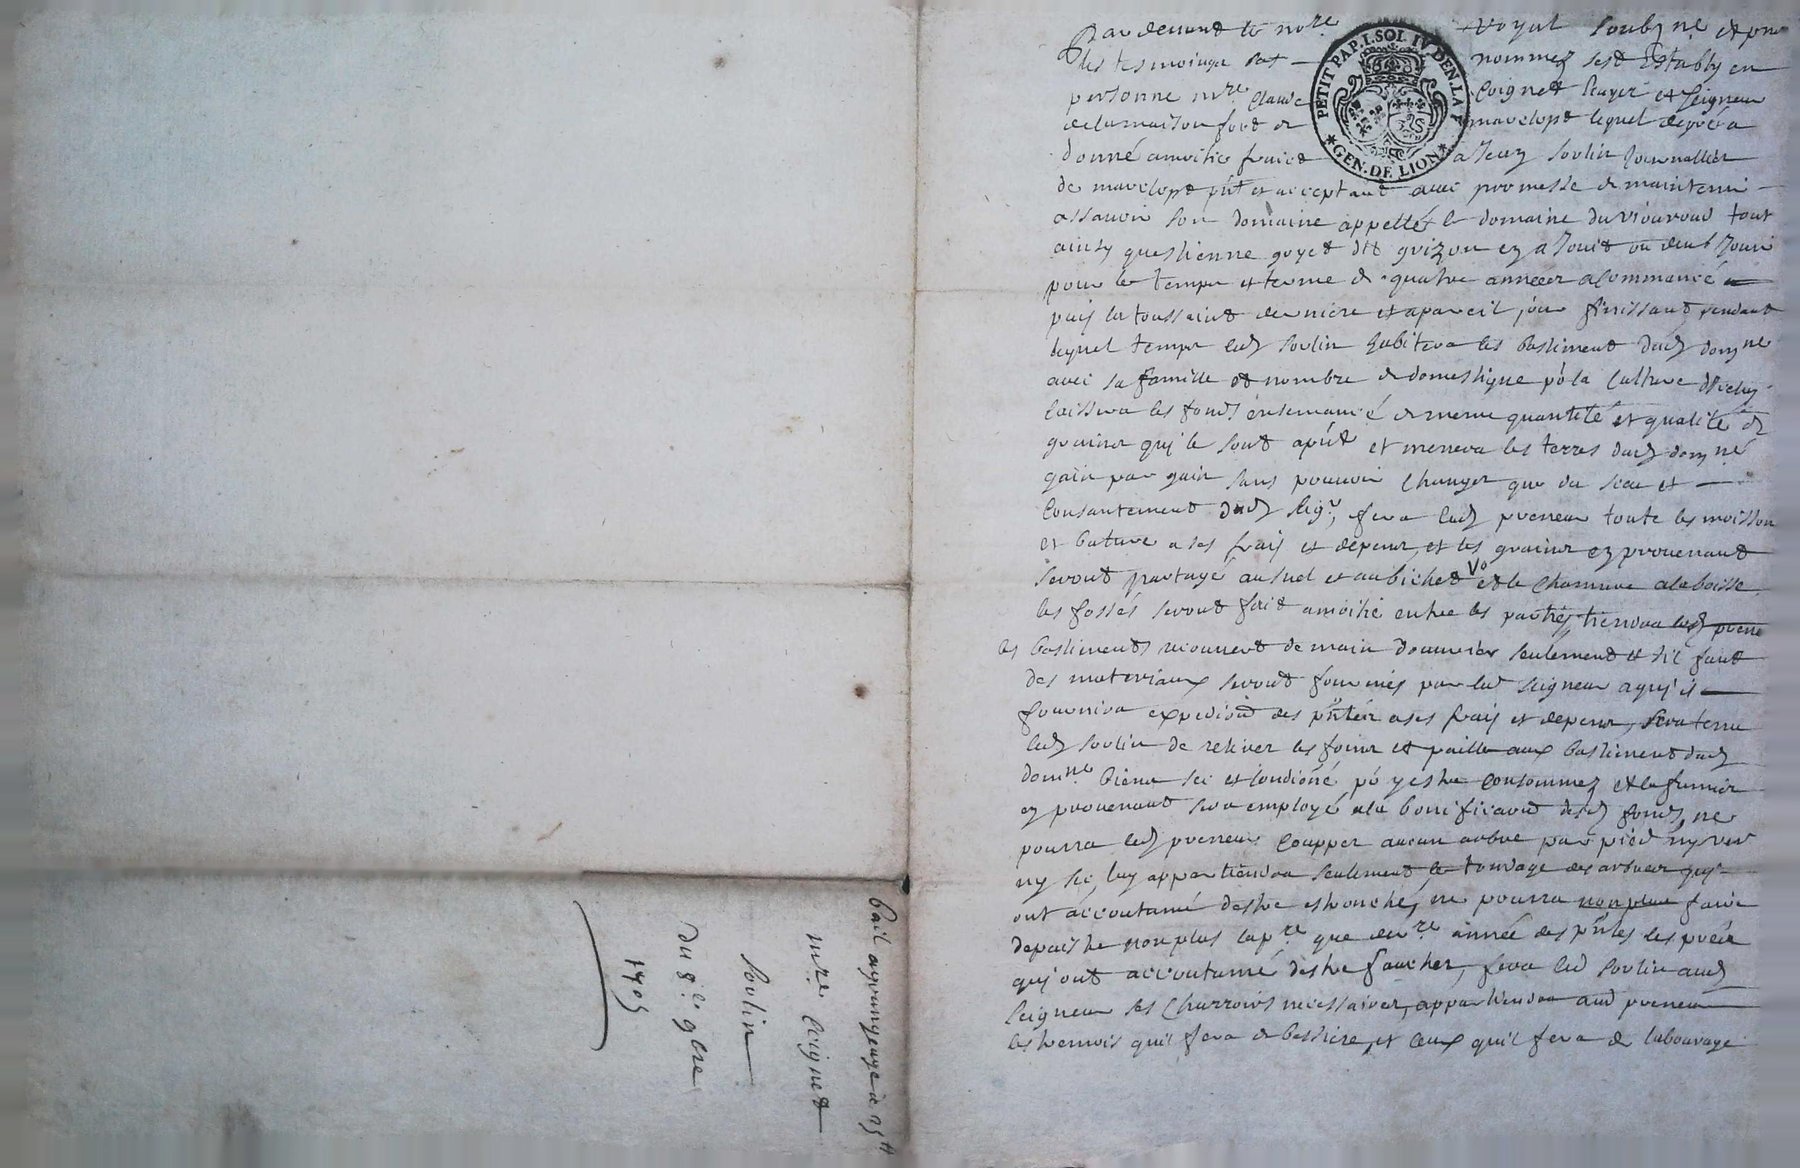 Par devant le no.re royal soubz.né et pnt
les tesmoings bas nommez sest Estably en
personne m.re Claude Coignet Esuyer et Seigneur
de la maison fort de mavelopt lequel de gré a
donné amoitié fruict a Jean Soulin Journallier
de mavelopt pnt et acceptant avec promesse de maintenir
assavoir son domaine appellé le domaine du
ainsy questienne goyet dit grizon en a Jouit ou deub Jouir
pour le temps et terme de quatre années a commancé
puis la toussaint derniere et apareil jour finissant pendant
lequel temps led Soulin habitera les bastiment dud dom.ne
avec sa famille et nombre de domestique po la Culture dicelluy
laissera les fonds ensemancé de meme quantité et qualité de
graines qui le sont apnt et menera les terres dud dom.ne
gain par gain sans pouvoir Changer que du sceu et
Consantement dud Seig.r, fera led preneur toute les moisson
et bature a ses frais et depens, et les grains en provenant
seront partagé au suel et au bichet Vo et le Chanvre a la boisse
les fossés seront fait amoitié entre les parties, tiendra led prene
les bastiments recouvert de main douvrier seulement et sil faut
des materiaux seront fournies par led Seigneur a qui il
fournira expedition des pntes a ses frais et depens, sera tenu
led Soulin de retirer les foins et paille aux bastiment dud
dom.ne Biens sec et Condioné po y estre Consommez et le fumier
en provenant sera employé a la bonificaon desd fonds, ne
pourra led preneur Coupper aucun arbre par pied ny vert
ny sec, luy appartiendra seulement le tondage des arbres qui
ont accoutumé destre estronché, ne pourra non plus faire
depaistre non plus la p.re que der.re année des pntes les prés
qui ont accoutumé destre faucher, fera led Soulin aud
Seigneur les Charrois necessaires, appartiendra aud preneur
les tremois quil fera de bessiere, et ceux quil fera de labourage
PETIT PAP. 1. SOL. IV DEN. LA F.
*GEN. DE LION*
bail agrangeage a 25tt
m.re Coignet
Soulin
du 8.e 9bre
1705